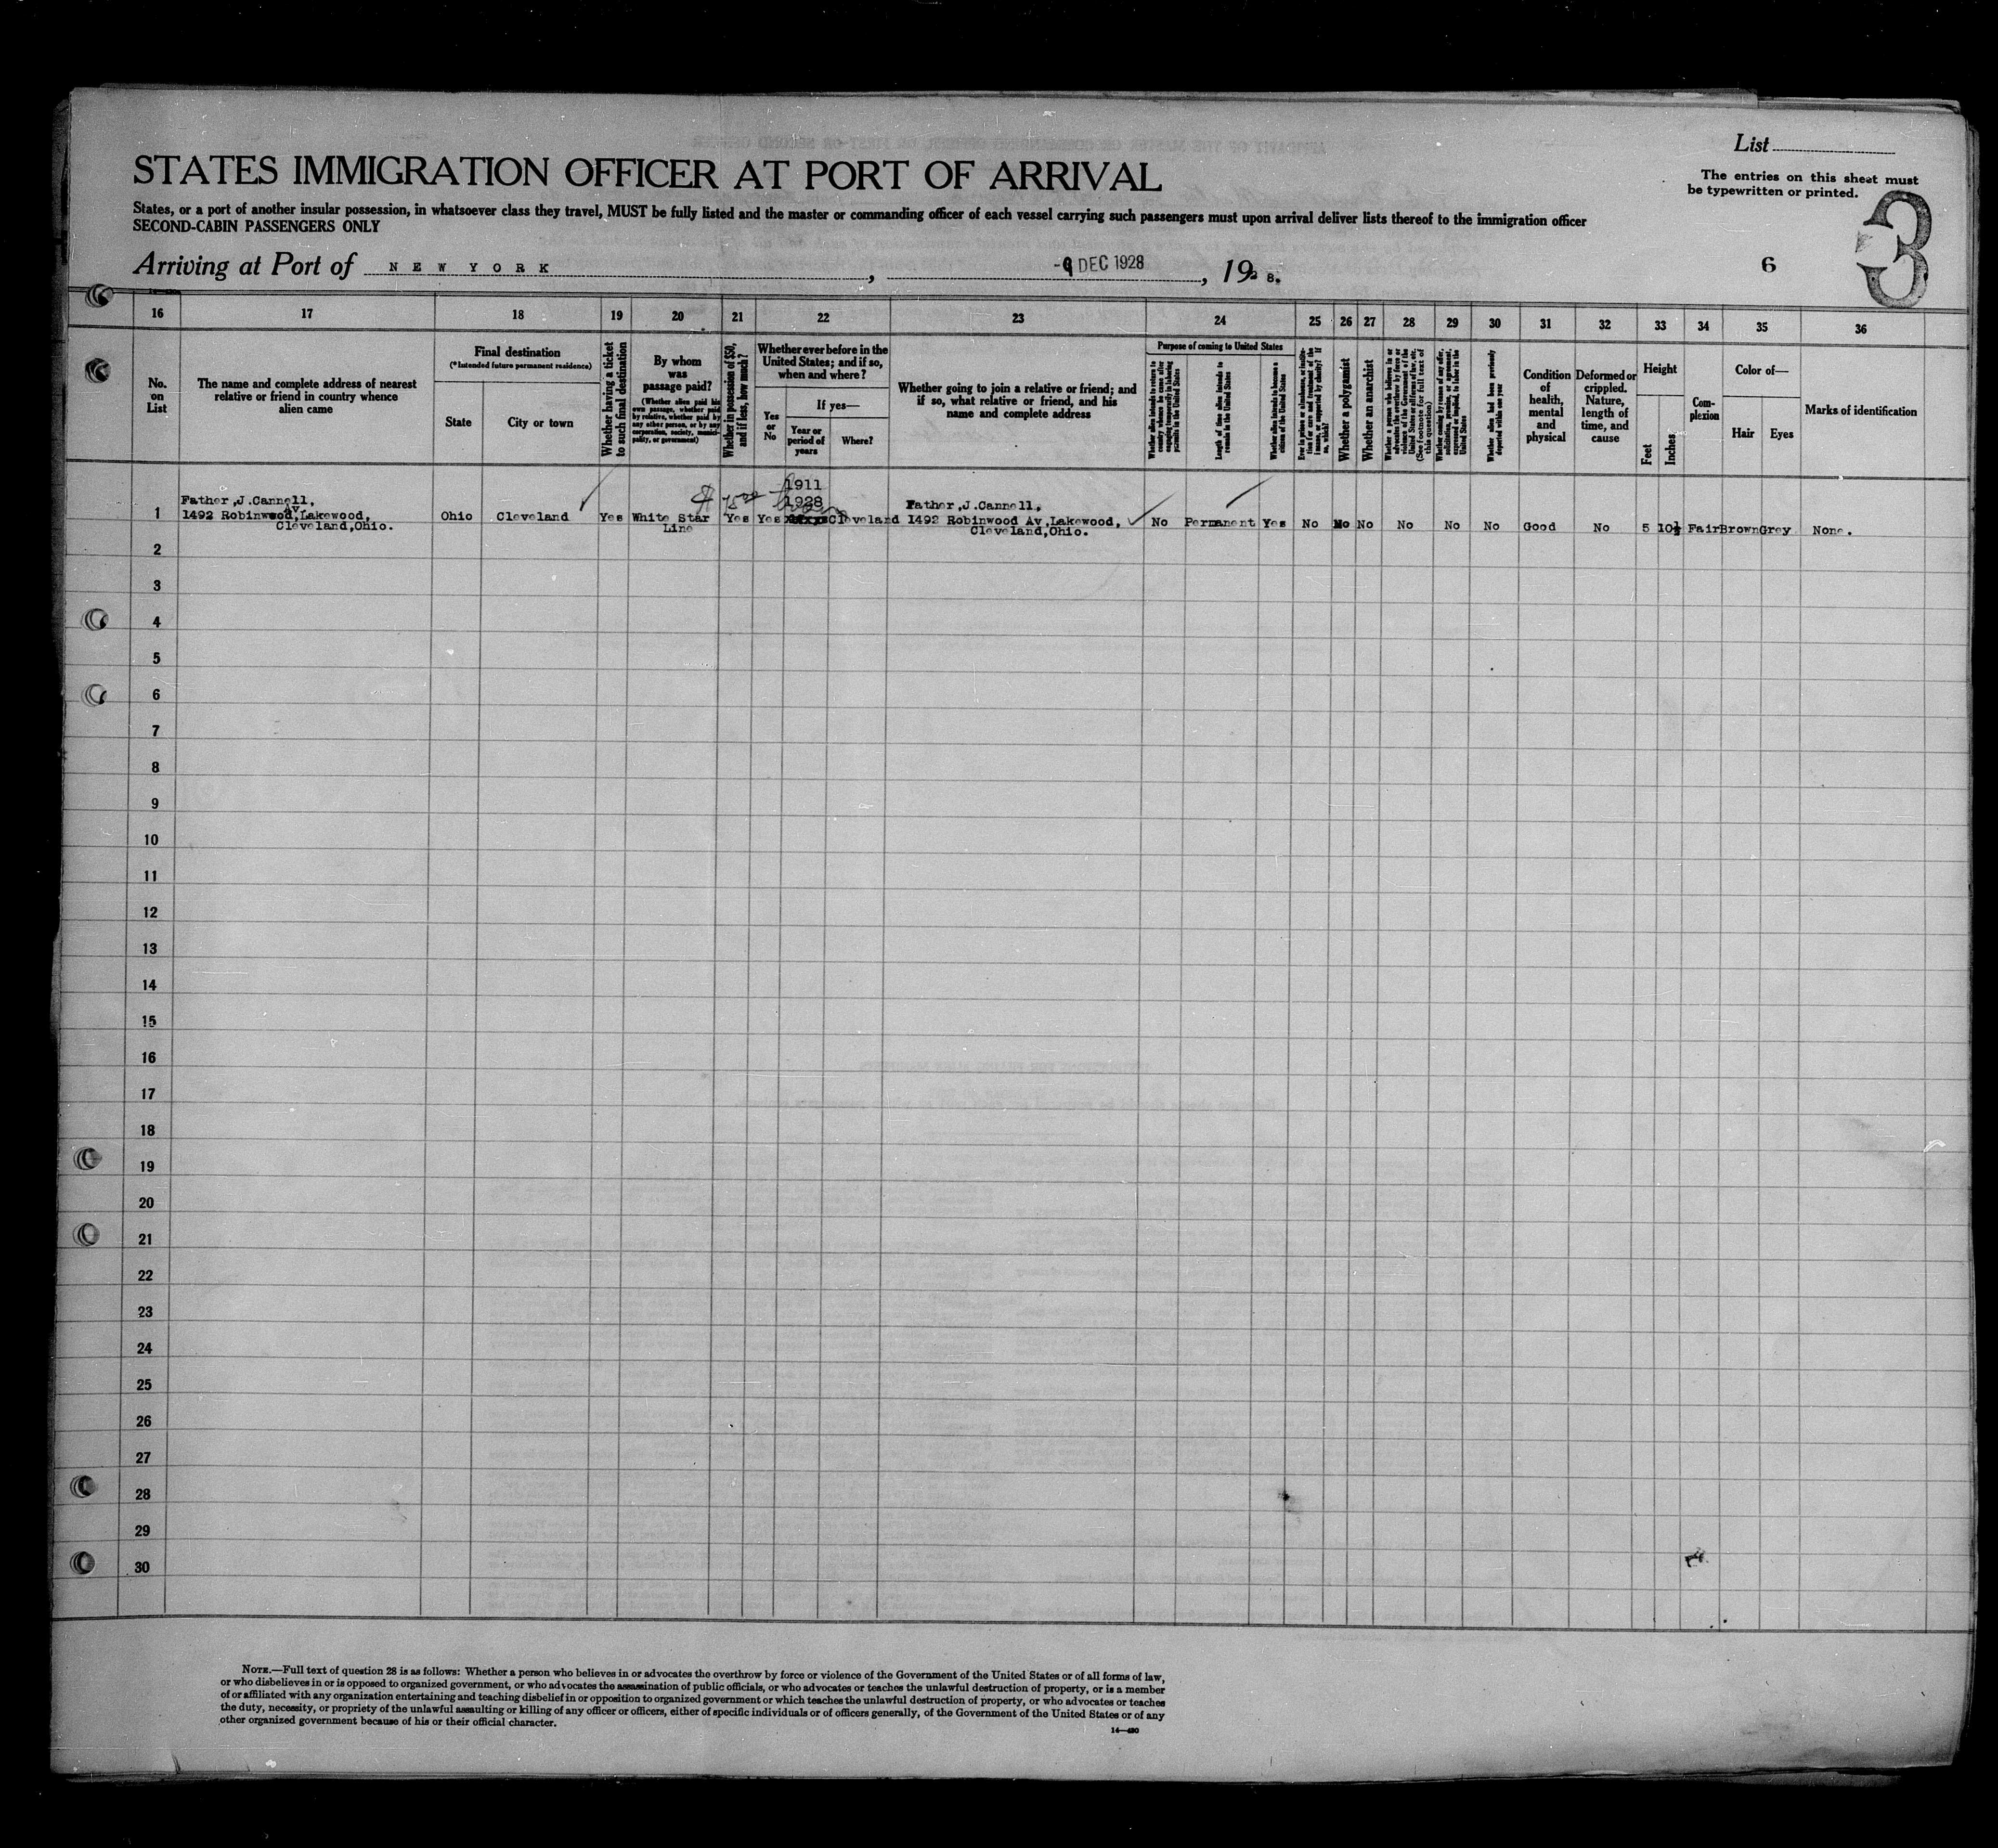 List
The entries on this sheet must
be typewritten or printed.
STATES IMMIGRATION OFFICER AT PORT OF ARRIVAL
States, or a port of another insular possession, in whatsoever class they travel, MUST be fully listed and the master or commanding officer of each vessel carrying such passengers must upon arrival deliver lists thereof to the immigration officer
SECOND-CABIN PASSENGERS ONLY
3
Arriving at Port of NEW YORK, DEC 1928, 1928.
6
16 17 18 19 20 21 22 23 24 25 26 27 28 29 30 31 32 33 34 35 36
No. on List
The name and complete address of nearest
relative or friend in country whence
alien came
Final destination
(*Intended future permanent residence)
State
City or town
Whether having a ticket
to such final destination
By whom
was
passage paid?
(Whether alien paid his
own passage, whether paid
by relative, whether paid by
any other person, or by any
corporation, society, munici-
pality, or government)
Whether in possession of $50,
and if less, how much?
Whether ever before in the
United States; and if so,
when and where?
Yes
or
No
If yes—
Year or
period of
years
Where?
Whether going to join a relative or friend; and
if so, what relative or friend, and his
name and complete address
Purpose of coming to United States
Whether alien intends to return to
country whence he came after
engaging temporarily in laboring
pursuits in the United States
Length of time alien intends to
remain in the United States
Whether alien intends to become a
citizen of the United States
Ever in prison or almshouse, or institu-
tion for care and treatment of the
insane, or supported by charity? If
so, which?
Whether a polygamist
Whether an anarchist
Whether a person who believes in or
advocates the overthrow by force or
violence of the Government of the
United States or all forms of law, etc.
(See footnote for full text of
this question)
Whether coming by reason of any offer,
solicitation, promise, or agreement,
expressed or implied, to labor in the
United States
Whether alien had been previously
deported within one year
Condition
of
health,
mental
and
physical
Deformed or
crippled.
Nature,
length of
time, and
cause
Height
Feet
Inches
Com-
plexion
Color of—
Hair
Eyes
Marks of identification
1
Father,J.Cannell,
1492 Robinwood Av,Lakewood,
Cleveland,Ohio.
Ohio
Cleveland
Yes
White Star
Line
Yes
Yes
1911
1928
Cleveland
Father,J.Cannell,
1492 Robinwood Av,Lakewood,
Cleveland,Ohio.
No
Permanent
Yes
No
No
No
No
No
No
Good
No
5
10½
Fair
Brown
Grey
None.
2
3
4
5
6
7
8
9
10
11
12
13
14
15
16
17
18
19
20
21
22
23
24
25
26
27
28
29
30
NOTE.—Full text of question 28 is as follows: Whether a person who believes in or advocates the overthrow by force or violence of the Government of the United States or of all forms of law,
or who disbelieves in or is opposed to organized government, or who advocates the assassination of public officials, or who advocates or teaches the unlawful destruction of property, or is a member
of or affiliated with any organization entertaining and teaching disbelief in or opposition to organized government or which teaches the unlawful destruction of property, or who advocates or teaches
the duty, necessity, or propriety of the unlawful assaulting or killing of any officer or officers, either of specific individuals or of officers generally, of the Government of the United States or of any
other organized government because of his or their official character.
14—480